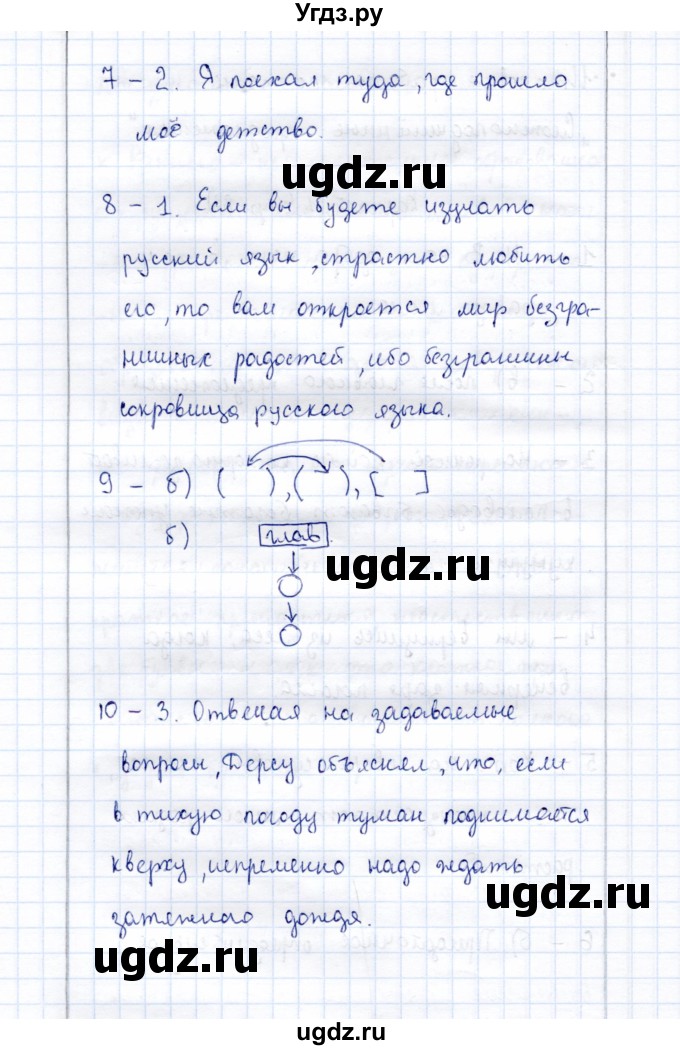 Угдз.ру
7 – 2. Я поехал туда, где прошло
моё детство.
ugdz.ru
8 – 1. Если вы будете изучать
русский язык, страстно любить
его, то вам откроется мир безгра-
ничных радостей, ибо безграничны
сокровища русского языка.
9 – б) ( ), ( ), [ ]
б) глав.
ugdz.ru
10 – 3. Отвечая на задаваемые
вопросы, Дерсу объяснял, что, если
в тихую погоду туман поднимается
кверху, непременно надо ждать
ugdz.ru
затяжного дождя.
ugdz.ru
ugdz.ru